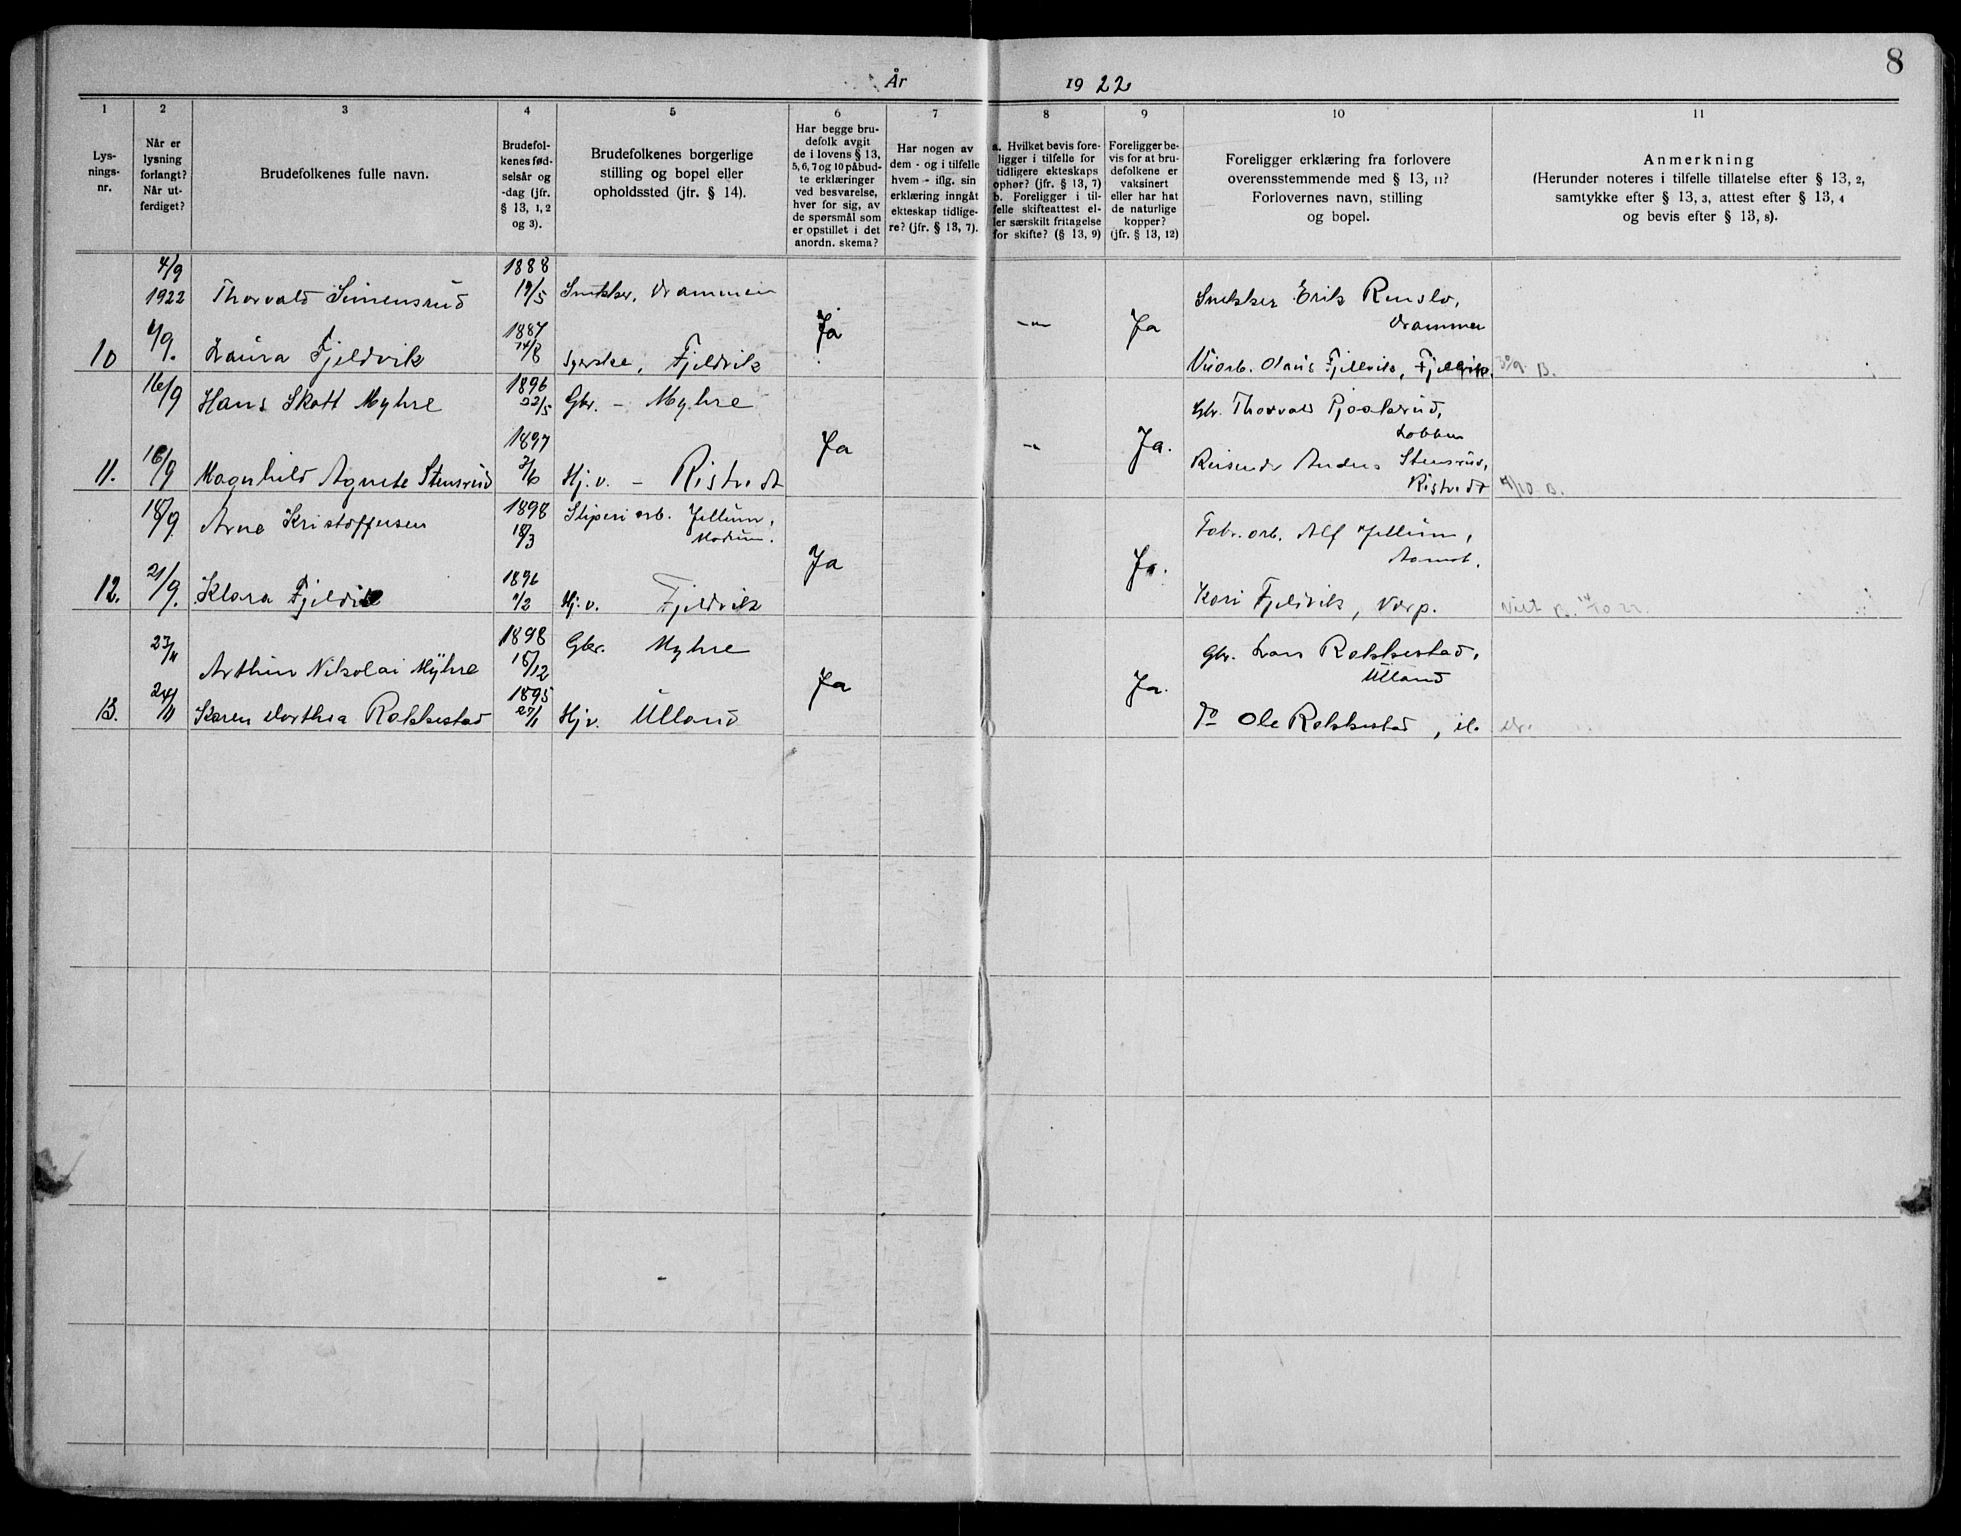 8
År 1922
1
2
3
4
5
6
7
8
9
10
11
Lys-
nings-
nr.
Når er
lysning
forlangt?
Når ut-
ferdiget?
Brudefolkenes fulle navn.
Brudefol-
kenes fød-
selsår og
-dag (jfr.
§ 13, 1, 2
og 3).
Brudefolkenes borgerlige
stilling og bopel eller
opholdssted (jfr. § 14).
Har begge bru-
defolk avgit
de i lovens § 13,
5, 6, 7 og 10 påbud-
te erklæringer
ved besvarelse,
hver for sig, av
de spørsmål som
er opstillet i det
anordn. skema?
Har nogen av
dem - og i tilfelle
hvem - iflg. sin
erklæring inngåt
ekteskap tidlige-
re? (jfr. § 13, 7).
a. Hvilket bevis fore-
ligger i tilfelle for
tidligere ekteskaps
ophør? (jfr. § 13, 7)
b. Foreligger i til-
felle skifteattest el-
ler særskilt fritagelse
for skifte? (§ 13, 9)
Foreligger be-
vis for at bru-
defolkene er
vaksinert
eller har hat
de naturlige
kopper?
(jfr. § 13, 12)
Foreligger erklæring fra forlovere
overensstemmende med § 13, 11?
Forlovernes navn, stilling
og bopel.
Anmerkning
(Herunder noteres i tilfelle tillatelse efter § 13, 2,
samtykke efter § 13, 3, attest efter § 13, 4
og bevis efter § 13, 8).
4/9 1888
1922 Thorvald Simensrud 19/5 Snekker, Drammen Snekker Erik
Drammen
Ja Ja
10 9. Laura Fjeldvik 1887 14/8 Syerske, Fjeldvik Olaus Fjeldvik, Fjeldvik. 30/9 B.
16/9 Hans Skott Myhre 1896 22/5 Gbr. - Myhre Gbr. Thorvald
Ja Ja.
11. 16/9 Magnhild Agnete Stensrud 1897 3/6 Hj.v. - Ristvedt Reisende Anders Stensrud,
Ristvedt /10 B.
18/9 Arne Kristoffersen 1898 18/3 Sliperiarb. Jellum, Modum. Fabr. arb. Alf Jellum,
Aamot.
Ja Ja.
12. 21/9. Klara Fjeldvik 1896 /2 Hj.v. Fjeldvik Kari Fjeldvik, Viet B. 14/10 22.
23/11 Arthur Nikolai Myhre 1898 15/12 Gbr. Myhre Gbr. Lars Rokkestad,
Ulland
Ja Ja.
13. 24/11 Karen Dorthea Rokkestad 1895 27/1 Hjv. Ulland do Ole Rokkestad,